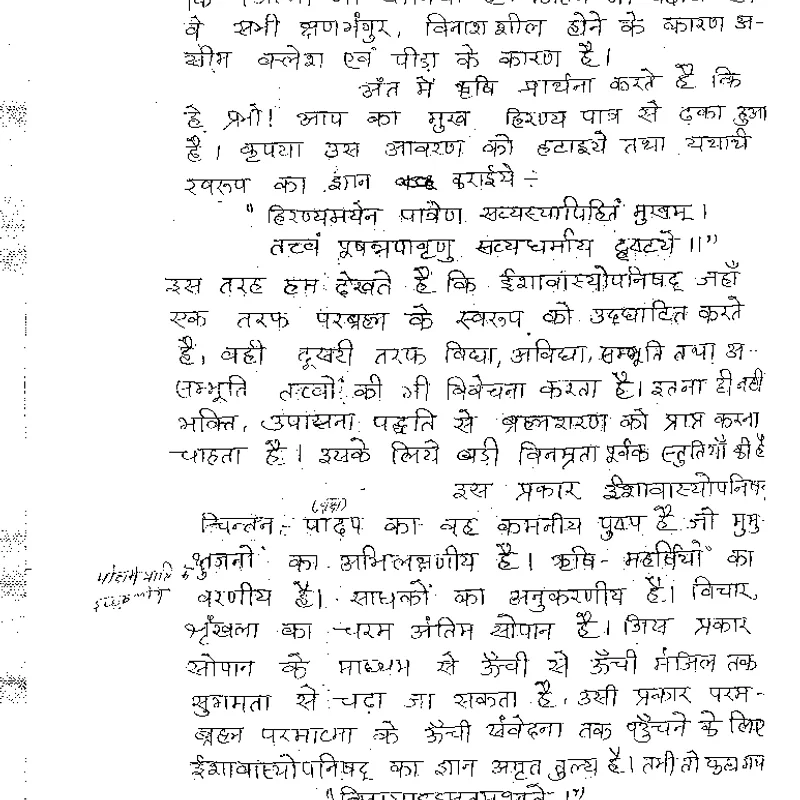 वे सभी क्षणभंगुर, विनाशशील होने के कारण अ-
सीम क्लेश एवं पीड़ा के कारण है।
अंत में ऋषि प्रार्थना करते है कि
हे प्रभो! आप का मुख हिरण्य पात्र से ढ़का हुआ
है। कृपया उस आवरण को हटाइये तथा यथार्थ
स्वरूप का ज्ञान कराईये ÷
" हिरण्यमयेन पात्रेण सत्यस्यापिहितं मुखम्।
तत्वं पूषन्नपावृणु सत्यधर्माय दृष्टये ॥"
इस तरह हम देखते हैं कि ईशावास्योपनिषद् जहाँ
एक तरफ परब्रह्म के स्वरूप को उद्घाटित करते
है, वही दूसरी तरफ विद्या, अविद्या, सम्भूति तथा अ-
सम्भूति तत्वों की भी विवेचना करता है। इतना ही नहीं
भक्ति, उपासना पद्धति से ब्रह्मशरण को प्राप्त करना
चाहता है। इसके लिये बड़ी विनम्रता पूर्वक स्तुतियाँ की है
इस प्रकार ईशावास्योपनिषद
चिन्तन - पादप का वह कमनीय पुष्प है जो मुमु-
क्षुजनों का अभिलक्षणीय है। ऋषि - महर्षियों का
वरणीय है। साधकों का अनुकरणीय है। विचार,
श्रृंखला का चरम अंतिम सोपान है। जिस प्रकार
सोपान के माध्यम से ऊँची से ऊँची मंजिल तक
सुगमता से चढ़ा जा सकता है, उसी प्रकार परम-
ब्रह्म परमात्मा के ऊँची संवेदना तक पहुँचने के लिए
ईशावास्योपनिषद् का ज्ञान अमृत तुल्य है। तभी तो कहा गया